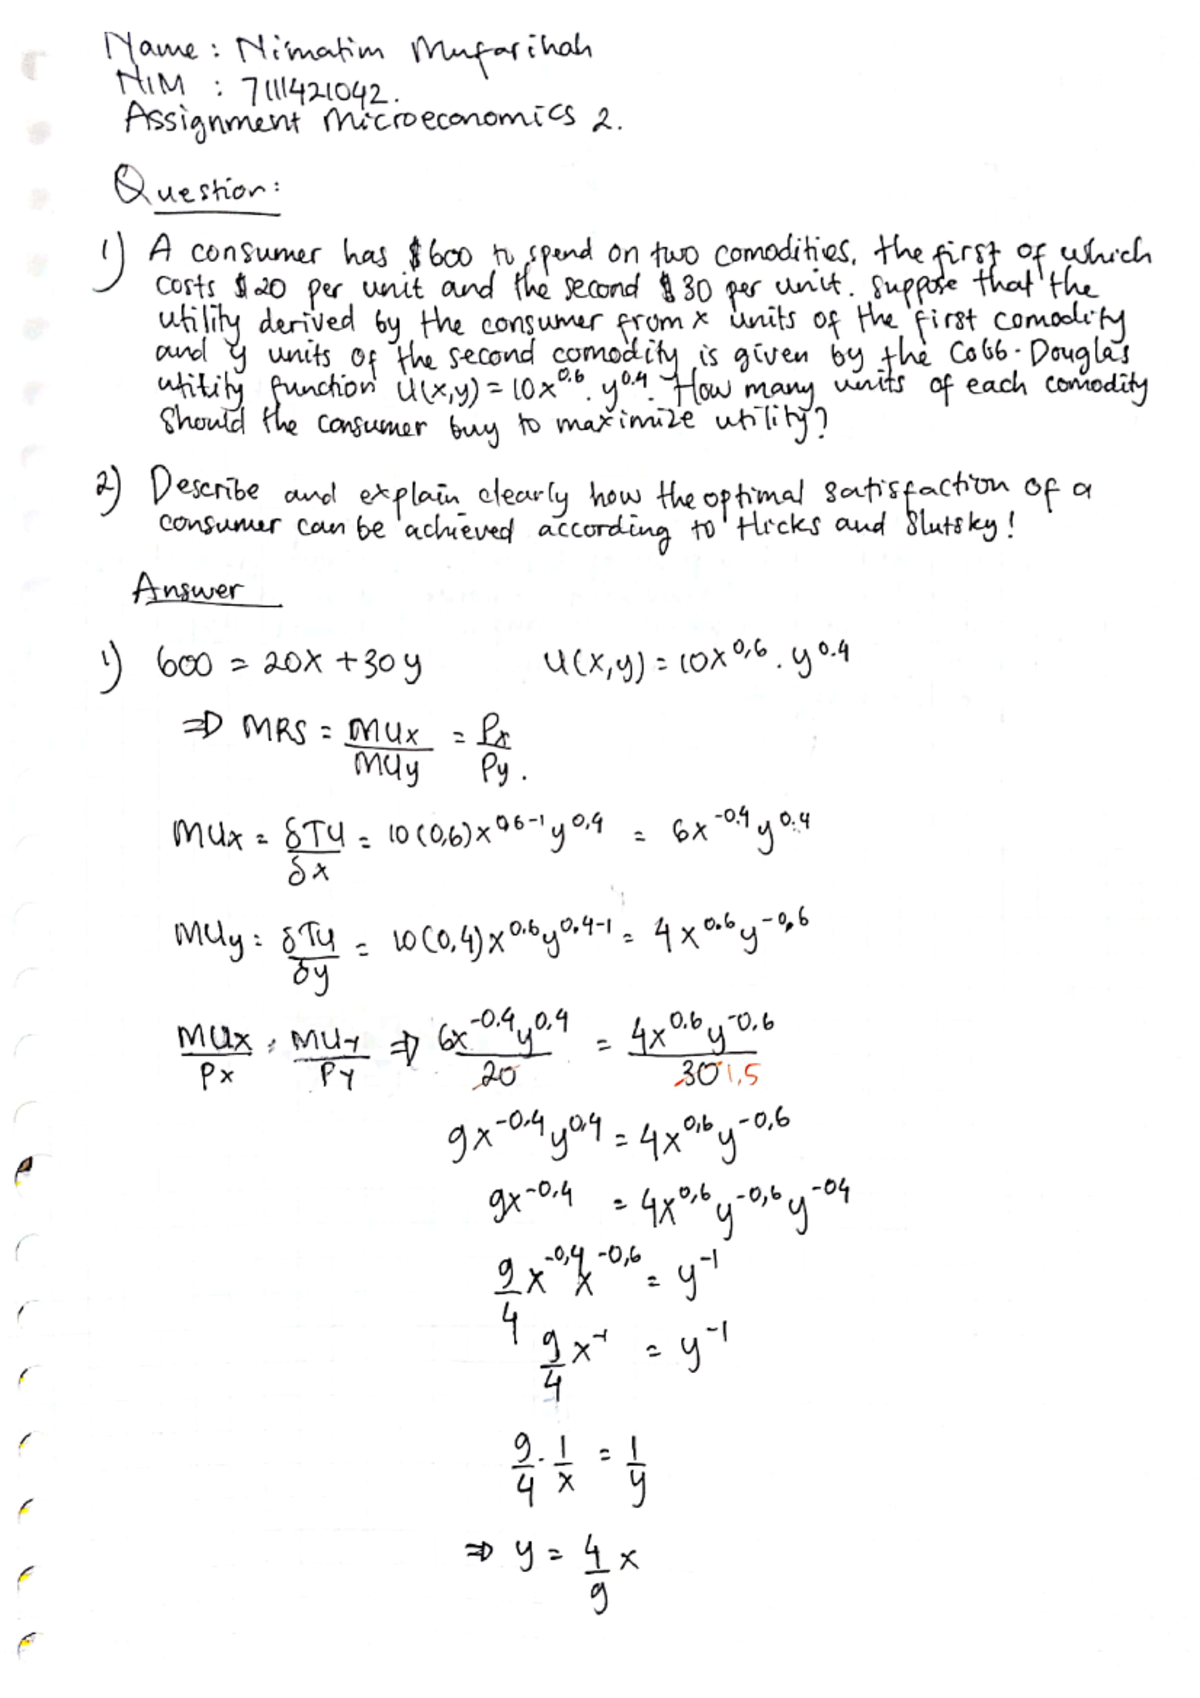 Name : Ni'matim Mufarihah
NIM : 7111421042.
Assignment Microeconomics 2.
Question:
1) A consumer has $600 to spend on two comodities, the first of which
costs $20 per unit and the second $30 per unit. Suppose that the
utility derived by the consumer from x units of the first comodity
and y units of the second comodity is given by the Cobb-Douglas
utility function U(x,y) = 10x^0.6 . y^0.4. How many units of each comodity
should the consumer buy to maximize utility?
2) Describe and explain clearly how the optimal satisfaction of a
consumer can be achieved according to Hicks and Slutsky!
Answer
1) 600 = 20x + 30y U(x,y) = 10x^0,6 . y^0.4
⇒ MRS = MUx/MUy = Px/Py.
MUx = δTU/δx = 10(0,6)x^0,6-1 y^0,4 = 6x^-0.4 y^0.4
MUy = δTU/δy = 10(0,4)x^0.6 y^0,4-1 = 4x^0.6 y^-0,6
MUx/Px = MUY/PY ⇒ 6x^-0.4 y^0.4/20 = 4x^0.6 y^-0.6/30 1,5
9x^-0.4 y^0,4 = 4x^0,6 y^-0,6
9x^-0,4 = 4x^0,6 y^-0,6 y^-04
9/4 x^-0,4 x^-0,6 = y^-1
9/4 x^-1 = y^-1
9/4 . 1/x = 1/y
⇒ y = 4/9 x